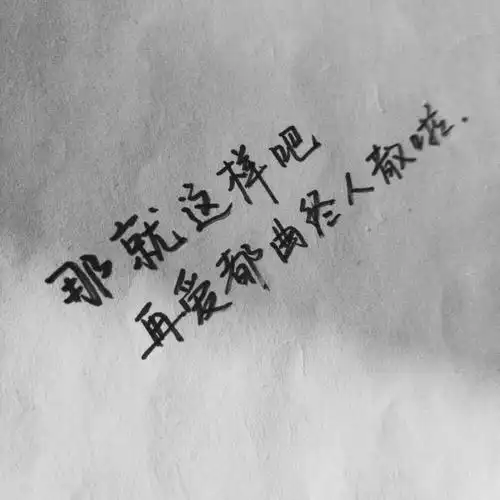 那就这样吧
再爱都曲终人散啦.